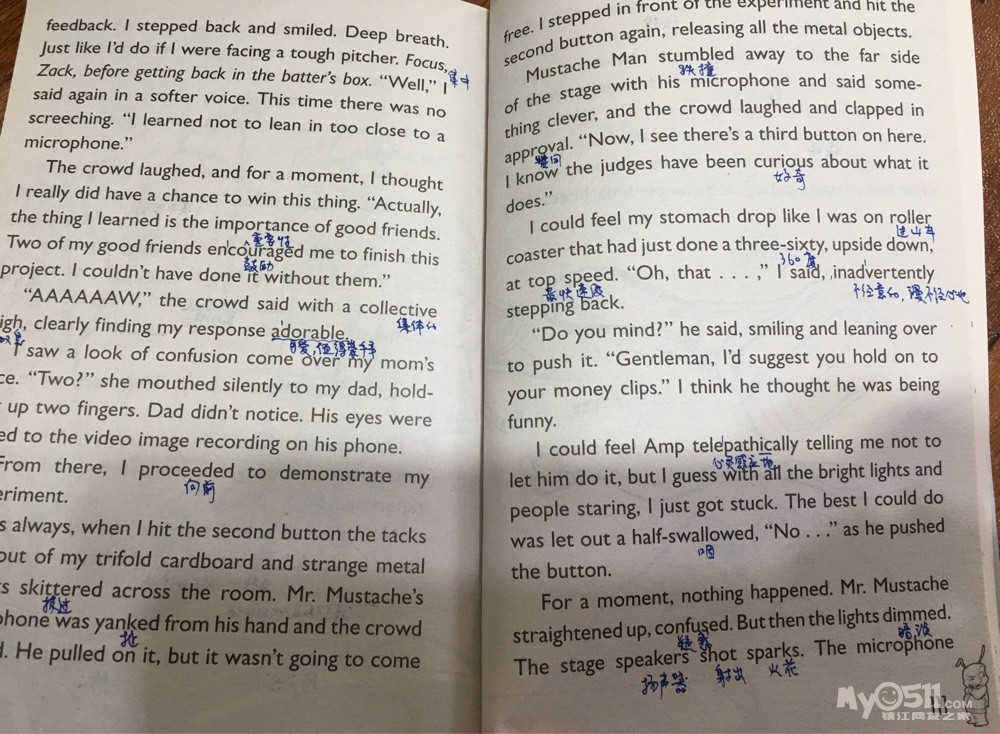 feedback. I stepped back and smiled. Deep breath.
Just like I'd do if I were facing a tough pitcher. Focus,
集中
Zack, before getting back in the batter's box. "Well," I
said again in a softer voice. This time there was no
screeching. "I learned not to lean in too close to a
microphone."
The crowd laughed, and for a moment, I thought
I really did have a chance to win this thing. "Actually,
the thing I learned is the importance of good friends.
重要性
Two of my good friends encouraged me to finish this
鼓励
project. I couldn't have done it without them."
"AAAAAAW," the crowd said with a collective
集体的
igh, clearly finding my response adorable.
可爱,值得
I saw a look of confusion come over my mom's
ce. "Two?" she mouthed silently to my dad, hold-
up two fingers. Dad didn't notice. His eyes were
ed to the video image recording on his phone.
From there, I proceeded to demonstrate my
向前
eriment.
s always, when I hit the second button the tacks
out of my trifold cardboard and strange metal
rs skittered across the room. Mr. Mustache's
掠过
phone was yanked from his hand and the crowd
d. He pulled on it, but it wasn't going to come
free. I stepped in front of the experiment and hit the
second button again, releasing all the metal objects.
Mustache Man stumbled away to the far side
跌撞
of the stage with his microphone and said some-
thing clever, and the crowd laughed and clapped in
approval. "Now, I see there's a third button on here.
赞同
I know the judges have been curious about what it
好奇
does."
I could feel my stomach drop like I was on roller
过山车
coaster that had just done a three-sixty, upside down,
360度
at top speed. "Oh, that . . . ," I said, inadvertently
最快速度
不经意的,漫不经心地
stepping back.
"Do you mind?" he said, smiling and leaning over
to push it. "Gentleman, I'd suggest you hold on to
your money clips." I think he thought he was being
funny.
I could feel Amp telepathically telling me not to
心灵感应地
let him do it, but I guess with all the bright lights and
people staring, I just got stuck. The best I could do
was let out a half-swallowed, "No . . ." as he pushed
咽
the button.
For a moment, nothing happened. Mr. Mustache
straightened up, confused. But then the lights dimmed.
疑惑
暗淡
The stage speakers shot sparks. The microphone
扬声器 射出 火花
111
My0511.COM
镇江网友之家